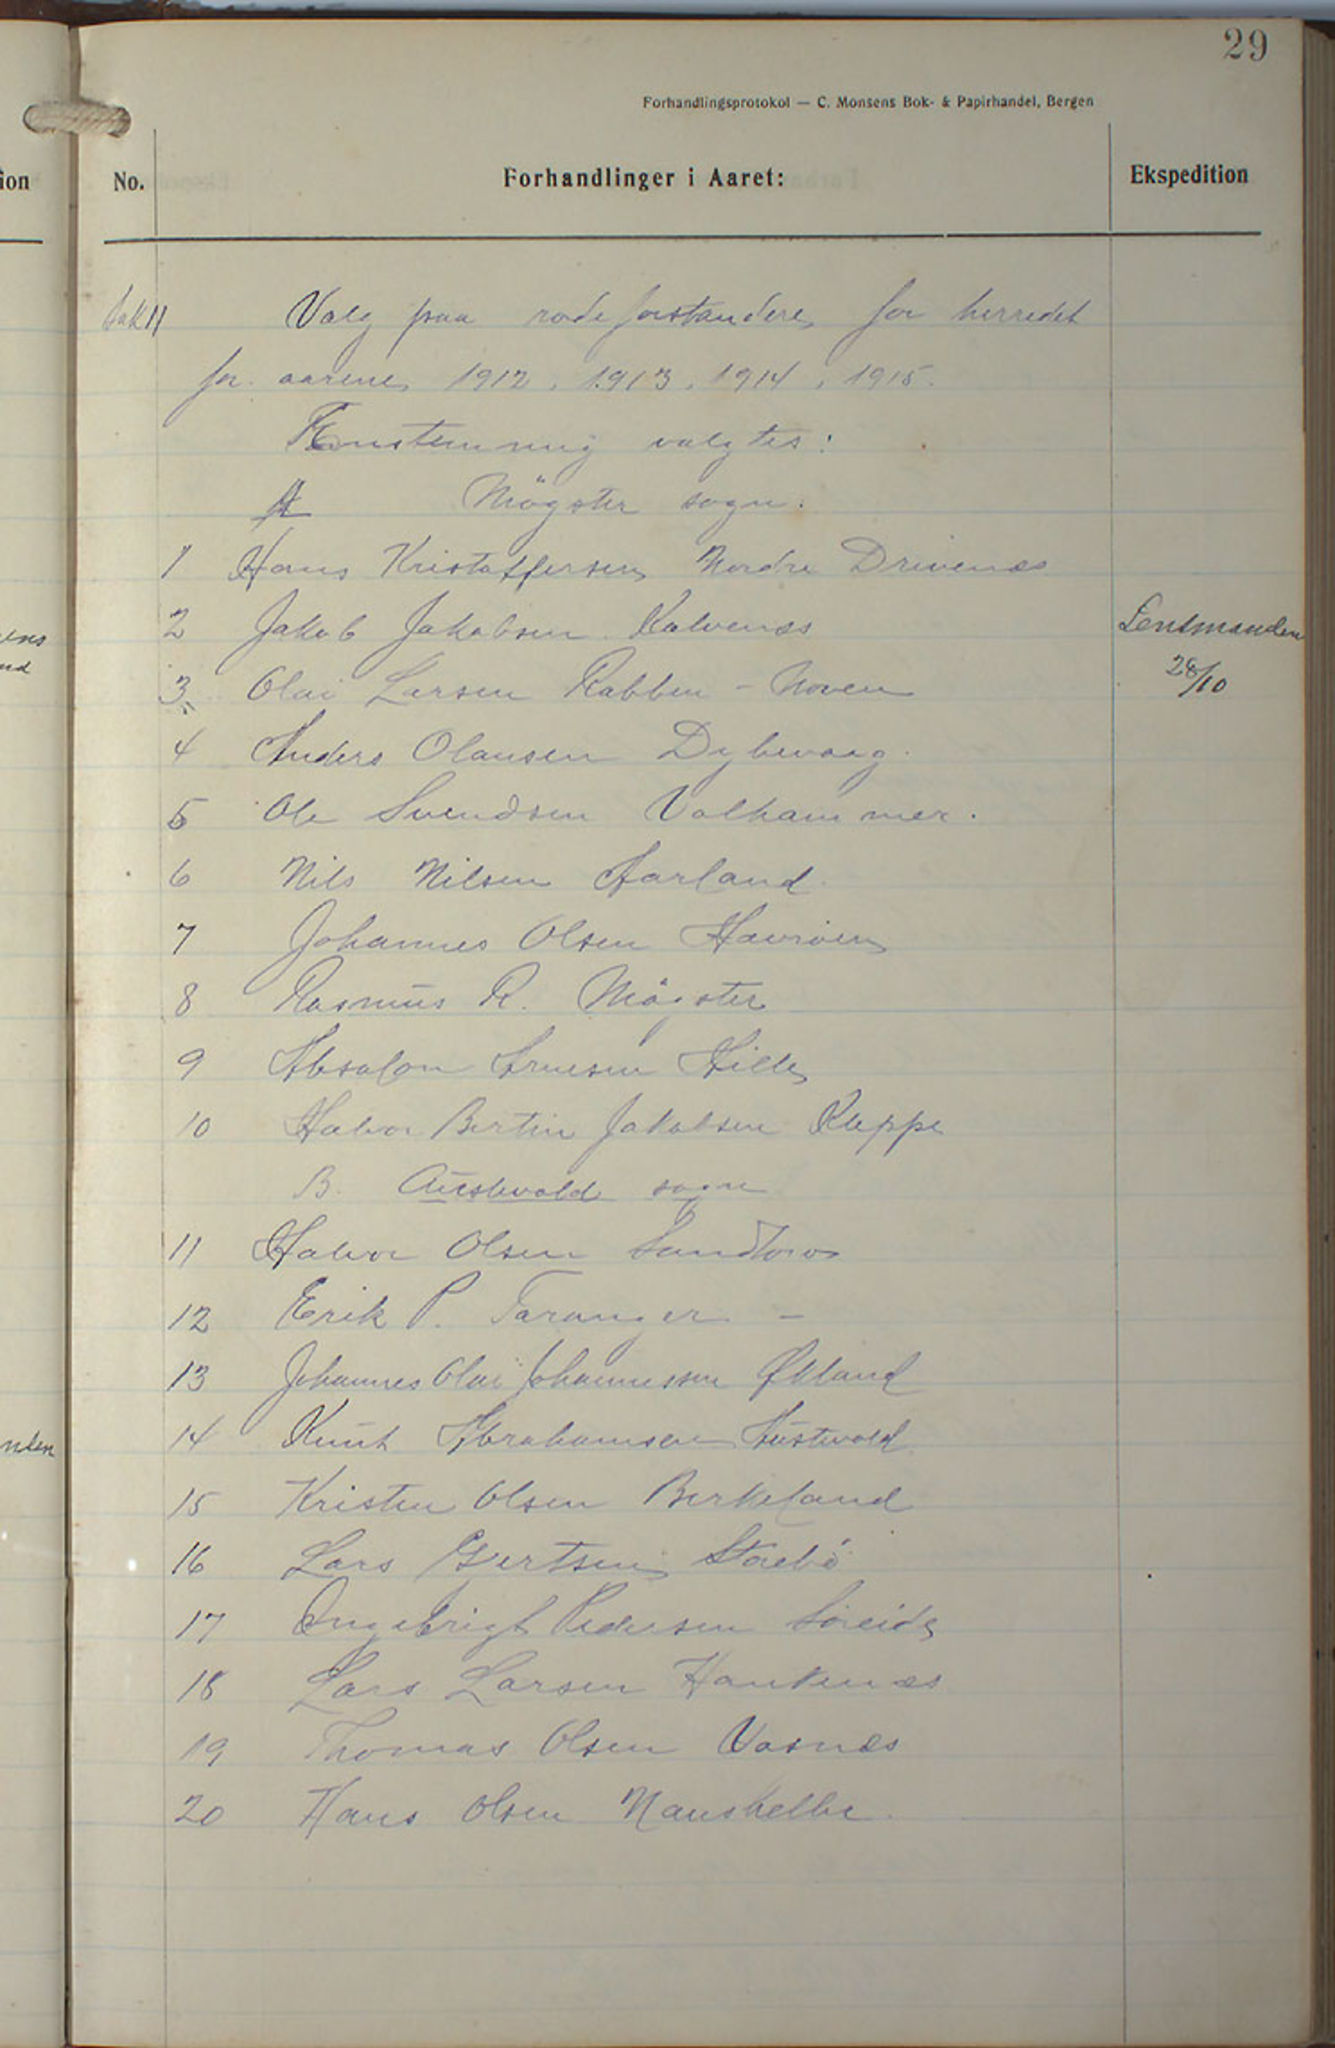 29
Forhandlingsprotokol — C. Monsens Bok- & Papirhandel, Bergen
ion No. Forhandlinger i Aaret: Ekspedition
Sak 11 Valg paa rodeforstandere for herredet
for aarene 1912, 1913, 1914, 1915.
Enstemmig valgtes:
A Mögster sogn.
1 Hans Kristoffersen Nordre Drivenæs
2 Jakob Jakobsen Kalvenæs Lensmanden
3 Olai Larsen Rabben - 28/10
4 Anders Olausen Dybevaag.
5 Ole Svendsen Valhammer.
6 Nils Nilsen Aarland
7 Johannes Olsen
8 Rasmus R. Mögster
9 Absalon Arnesen Hille
10 Halvor Bertin Jakobsen Kleppe
B. Austevold sogn
11 Halvor Olsen Sandtorv
12 Erik P. Taranger -
13 Johannes Olai Johannessen Økland
14 Knut Abrahamsen Austevold
15 Kristen Olsen Birkeland
16 Lars Gjertsen Storebö
17 Ingebrigt Pedersen Söreide
18 Lars Larsen Haukenæs
19 Thomas Olsen Vasnæs
20 Hans Olsen Naushelle.